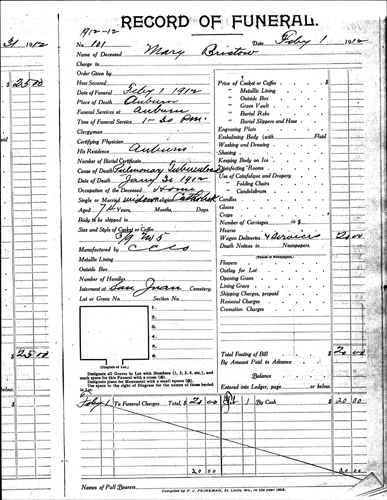 1912-12
RECORD OF FUNERAL.
31 1912
No. 101
Date Feby 1 1912
Name of Deceased Mary Bristow
Charge to
Order Given
How Secured
Date of Funeral Feby 1 1912
Place of Death Auburn
Funeral Services at Auburn
Time of Funeral Service 1-30 P.M.
Clergyman
Certifying Physician
His Residence Auburn
Number of Burial Certificate
Cause of Death Pulmonary Tuberculosis
Date of Death Jany 30 1912
Occupation of the Deceased Home
Single or Married widow Religion Catholic
Aged 74 Years, Months, Days.
Body to be shipped to
Size and Style of Casket or Coffin
5/9
Manufactured by
Metallic Lining
Outside Box
Number of Handles
Interment at San Juan Cemetery.
Lot or Grave No. Section No.
1.
2.
3.
4.
5.
6.
(Diagram of Lot.)
Designate all Graves in Lot with Numbers (1, 2, 3, 4, etc.), and mark space for this Funeral with a cross
Designate place for Monument with a small square
Use the space to right of Diagram for the names of those buried in Lot.
Price of Casket or Coffin
" Metallic Lining
" Outside Box
" Grave Vault
" Burial Robe
" Burial Slippers and Hose
Engraving Plate
Embalming Body (with Fluid)
Washing and Dressing
Shaving
Keeping Body on Ice
Disinfecting Rooms
Use of Catafalque and Drapery
" Folding Chairs
" Candelabrum
Candles
Gloves
Crape
Number of Carriages @ $
Hearse
Wagon Deliveries & Services 20 00
Death Notices in Newspapers.
(Names of Newspapers)
Flowers
Outlay for Lot
Opening Grave
Lining Grave
Shipping Charges, prepaid
Removal Charges
Cremation Charges
Total Footing of Bill $ 20 00
By Amount Paid in Advance
Balance
Entered into Ledger, page or below.
Feby 1 To Funeral Charges Total, $ 20 00
1 By Cash $ 20 00
20 00
20 00
Names of Pall Bearers
Compiled by F. J. FEINEMAN, St. Louis, Mo., in the year 1903.
25 00
25 00